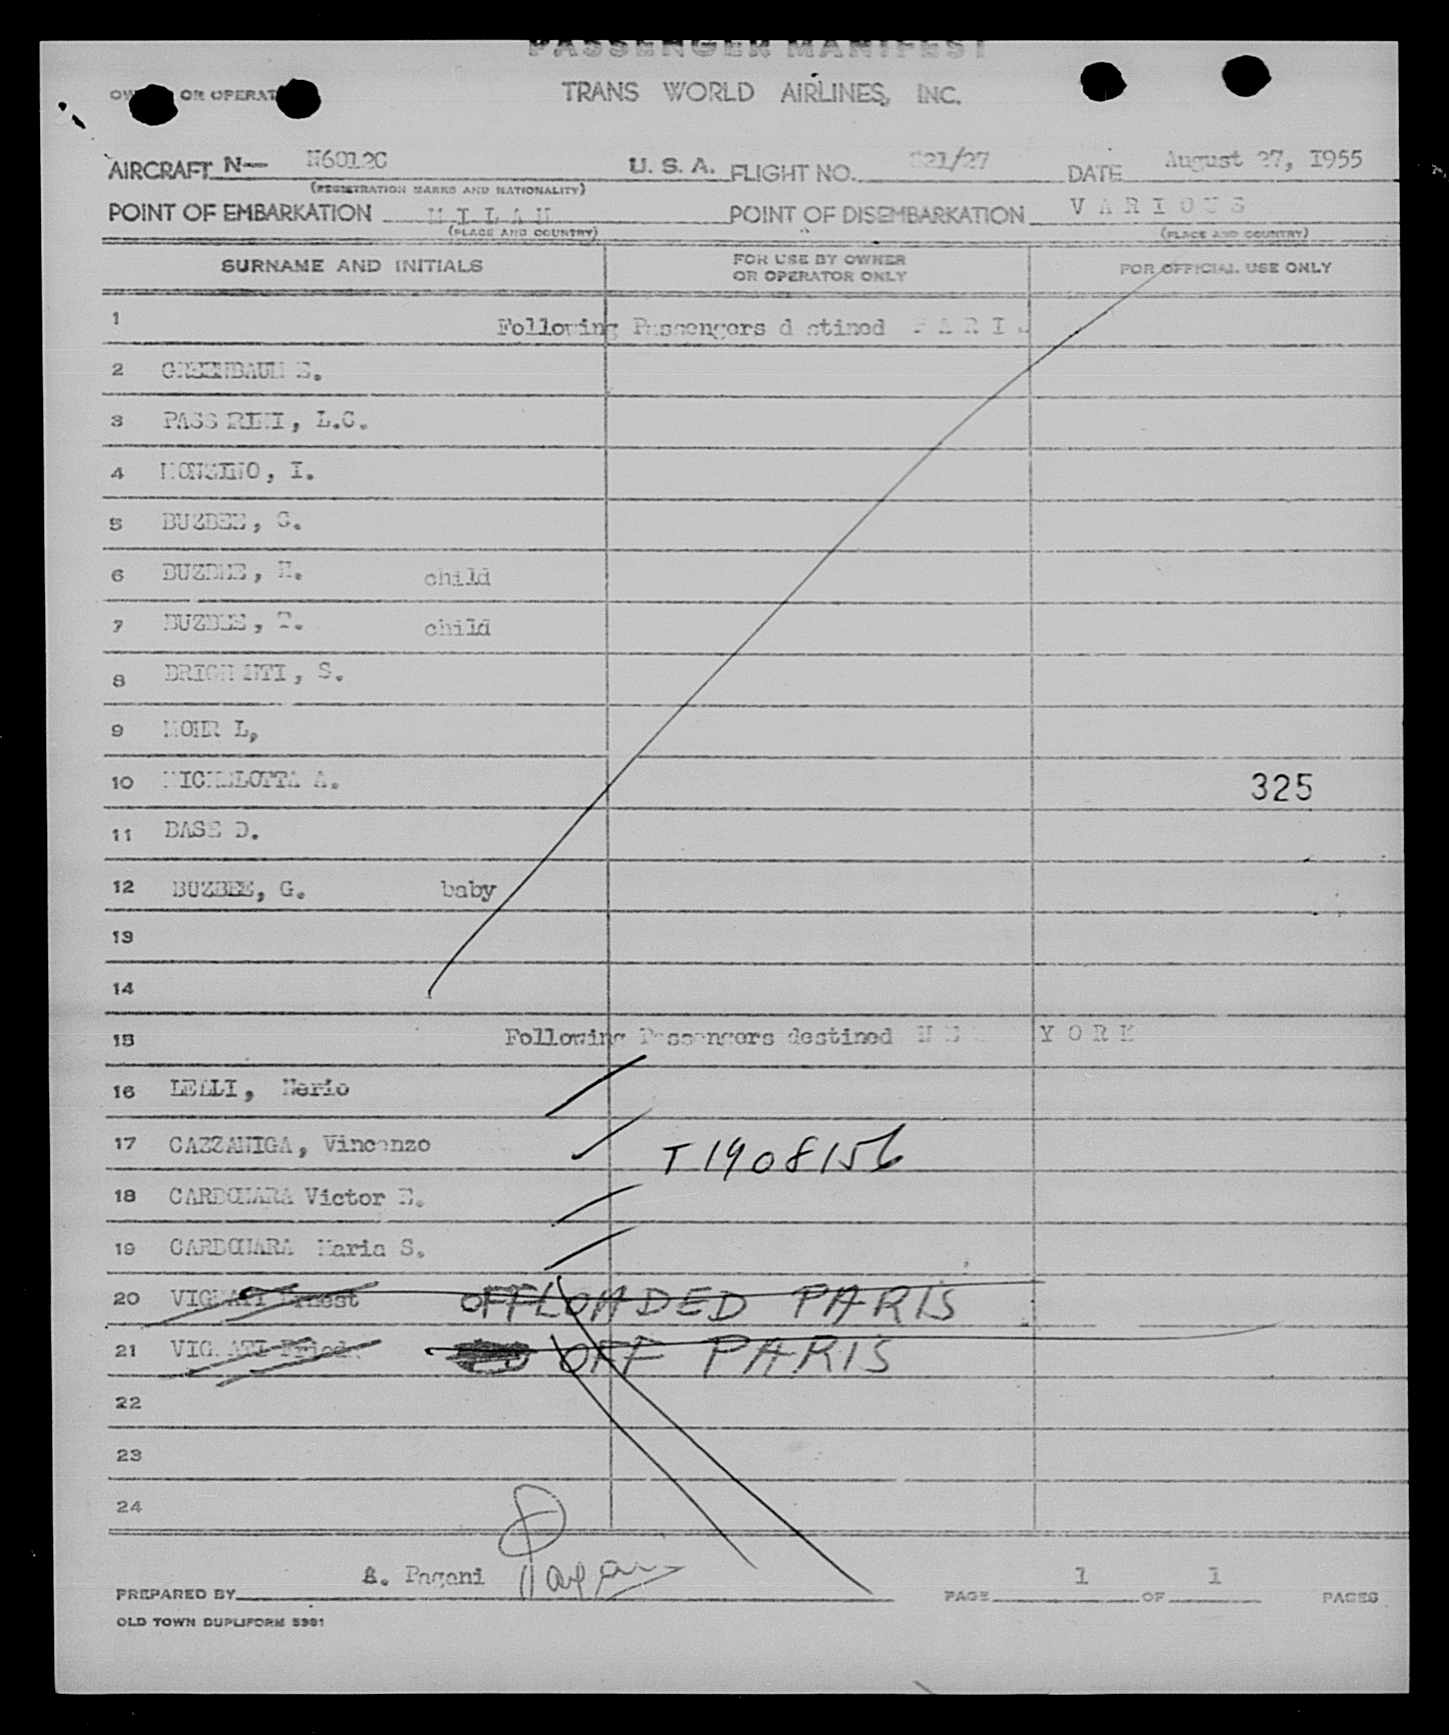 PASSENGER MANIFEST
OR OPERAT
TRANS WORLD AIRLINES, INC.
AIRCRAFT N— N6012C U. S. A. FLIGHT NO. 921/27 DATE August 27, 1955
(REGISTRATION MARKS AND NATIONALITY)
POINT OF EMBARKATION MILAN POINT OF DISEMBARKATION VARIOUS
(PLACE AND COUNTRY) (PLACE AND COUNTRY)
SURNAME AND INITIALS FOR USE BY OWNER OR OPERATOR ONLY FOR OFFICIAL USE ONLY
1 Following Passengers destined PARIS
2 GREENBAUM E.
3 PASSERINI, L.C.
4 MONZINO, I.
5 BUZBEE, C.
6 BUZBEE, H. child
7 BUZBEE, T. child
8 BRIGHENTI, S.
9 MOHR L,
10 MICHELOTTA A. 325
11 BASE D.
12 BUZBEE, G. baby
13
14
15 Following Passengers destined NEW YORK
16 LEALI, Nerio
17 CAZZANIGA, Vincenzo T1908156
18 Victor E.
19 Maria S.
20 VIGNATI Ernest OFFLOADED PARIS
21 VIGNATI Frieda OFF PARIS
22
23
24
PREPARED BY A. Pagani Pagani PAGE 1 OF 1 PAGES
OLD TOWN DUPLIFORM 5981